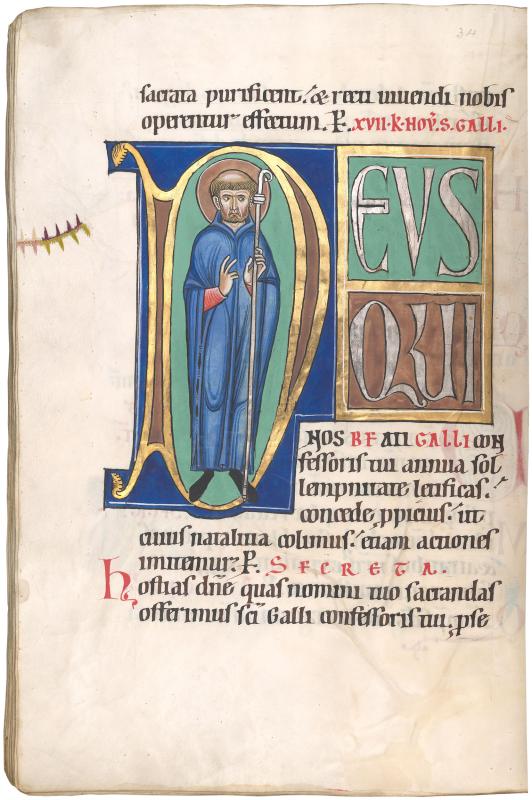 34
sacrata purificent. & recti uiuendi nobis
operentur effectum. P. XVII. K. NOV. S. GALLI.
DEVS
QUI
NOS BEATI GALLI CON
fessoris tui annua sol
lempnitate letificas.
concede ppicius. ut
cuius natalitia colimus. etiam actiones
imitemur. P. SECRETA.
Hostias dne quas nomini tuo sacrandas
offerimus sci Galli confessoris tui. pse